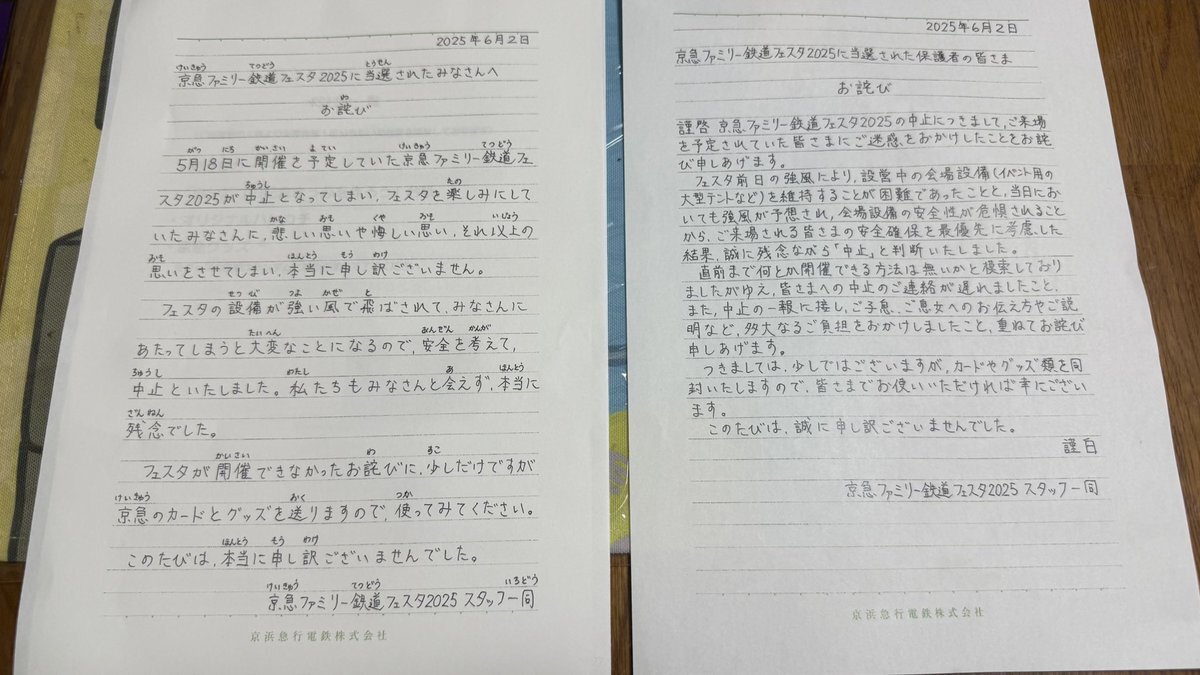 2025年6月2日
けいきゅう てつどう とうせん
京急ファミリー鉄道フェスタ2025に当選されたみなさんへ
わ
お詫び
がつ にち かいさい よてい けいきゅう てつどう
5月18日に開催を予定していた京急ファミリー鉄道フェ
ちゅうし たの
スタ2025が中止となってしまい、フェスタを楽しみにして
かな おも くや おも いじょう
いたみなさんに、悲しい思いや悔しい思い、それ以上の
おも ほんとう もう わけ
思いをさせてしまい、本当に申し訳ございません。
せつび つよ かぜ と
フェスタの設備が強い風で飛ばされて、みなさんに
たいへん あんぜん かんが
あたってしまうと大変なことになるので、安全を考えて、
ちゅうし わたし あ ほんとう
中止といたしました。私たちもみなさんと会えず、本当に
ざんねん
残念でした。
かいさい わ すこ
フェスタが開催できなかったお詫びに、少しだけですが
けいきゅう おく つか
京急のカードとグッズを送りますので、使ってみてください。
ほんとう もう わけ
このたびは、本当に申し訳ございませんでした。
けいきゅう てつどう いちどう
京急ファミリー鉄道フェスタ2025 スタッフ一同
京浜急行電鉄株式会社
2025年6月2日
京急ファミリー鉄道フェスタ2025に当選された保護者の皆さま
お詫び
謹啓 京急ファミリー鉄道フェスタ2025の中止につきまして、ご来場
を予定されていた皆さまにご迷惑をおかけしたことをお詫
び申しあげます。
フェスタ前日の強風により、設営中の会場設備(イベント用の
大型テントなど)を維持することが困難であったことと、当日にお
いても強風が予想され、会場設備の安全性が危惧されること
から、ご来場される皆さまの安全確保を最優先に考慮した
結果、誠に残念ながら「中止」と判断いたしました。
直前まで何とか開催できる方法は無いかと模索しており
ましたがゆえ、皆さまへの中止のご連絡が遅れましたこと、
また、中止の一報に接し、ご子息、ご息女へのお伝え方やご説
明など、多大なるご負担をおかけしましたこと、重ねてお詫び
申しあげます。
つきましては、少しではございますが、カードやグッズ類を同
封いたしますので、皆さまでお使いいただければ幸にござい
ます。
このたびは、誠に申し訳ございませんでした。
謹白
京急ファミリー鉄道フェスタ2025 スタッフ一同
京浜急行電鉄株式会社